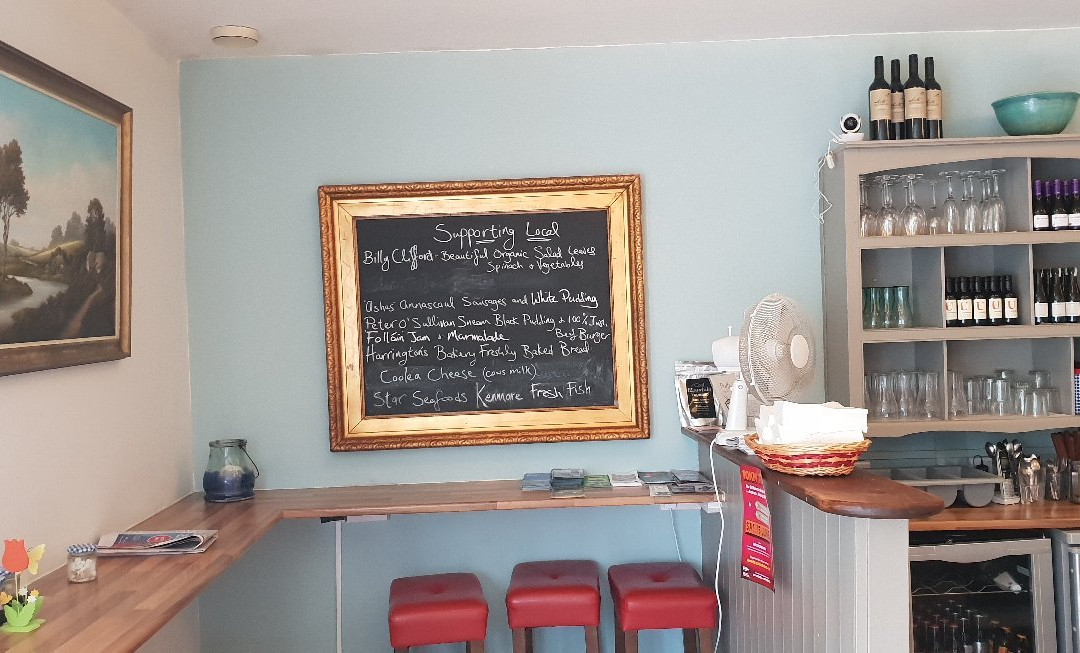 Supporting Local
Billy Clifford - Beautiful Organic Salad Leaves
Spinach & Vegetables
Ashas Annascaul Sausages and White Pudding
Peter O'Sullivan Sneam Black Pudding & 100%
Beef Burger
Folláin Jam & Marmalade
Harrington's Bakery Freshly Baked Bread
Coolea Cheese (cows milk)
Star Seafoods Kenmare Fresh Fish